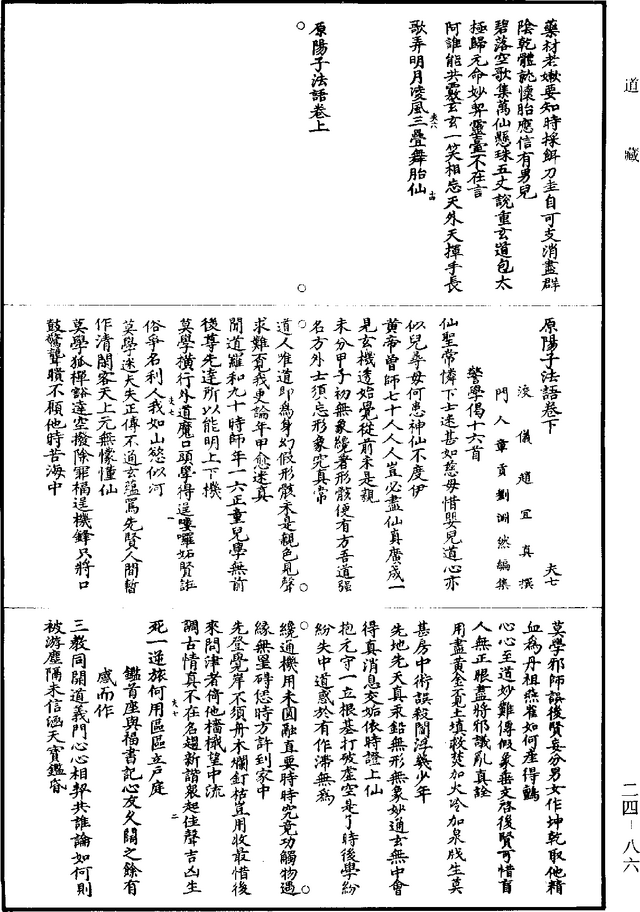 道藏
藥材老嫩要知時採餌刀圭自可支消盡群
陰乾體就懷胎應信有男兒
碧落空歌集萬仙懸珠五丈說重玄道包太
極歸元命妙契靈臺不在言
阿誰能共覈玄玄一笑相忘天外天揮手長
歌弄明月凌風三疊舞胎仙
夫六
十四
原陽子法語卷上
原陽子法語卷下
夫七
浚儀趙宜真撰
門人章貢劉淵然編集
警學偈十六首
仙聖常憐下士迷甚如慈母惜嬰兒道心亦
似兒尋母何患神仙不度伊
黃帝曾師七十人人人豈必盡仙真廣成一
見玄機透始覺從前未是親
未分甲子初無象纔著形骸便有方吾道強
名方外士須忘形象究真常
道人唯道即為身幻假形骸未是親色見聲
求難覓我更論年甲愈迷真
聞道離和九十時師年一六正童兒學無前
後尊先達所以能明上下機
莫學橫行外道魔口頭學得逞嘍囉妬賢誑
俗爭名利人我如山慾似河
夫七
一
莫學迷夫失正傳不通玄蘊罵先賢人間暫
作清閑客天上元無懞懂仙
莫學狐禪豁達空撥除罪福逞機鋒只將口
鼓驚聾聵不顧他時苦海中
莫學邪師誤後賢妄分男女作坤乾取他精
血為丹祖燕雀如何產得鸇
心心至道妙難傳假象垂文啓後賢可惜盲
人無正眼盡將邪議亂真詮
用盡黃金不覓土填救焚加火冷加泉戕生莫
甚房中術誤殺閻浮幾少年
先地先天真汞鉛無形無象妙通玄無中會
得真消息交姤依時證上仙
抱元守一立根基打破虛空是了時後學紛
紛失中道惑於有作滯無為
纔通機用未圓融直要時時究竟功觸物遇
緣無罣碍恁時方許到家中
先登覺岸不須舟木爛釘枯豈用收最惜後
來問津者倚他檣楫望中流
調古情真不在名趨新諧衆起佳聲吉凶生
死一逆旅何用區區立戶庭
夫七
二
鑑首座與福書記心友久闊之餘有
感而作
三教同開道義門心心相契共誰論如何則
被游塵隔未信涵天寶鑑昏
二四－八六